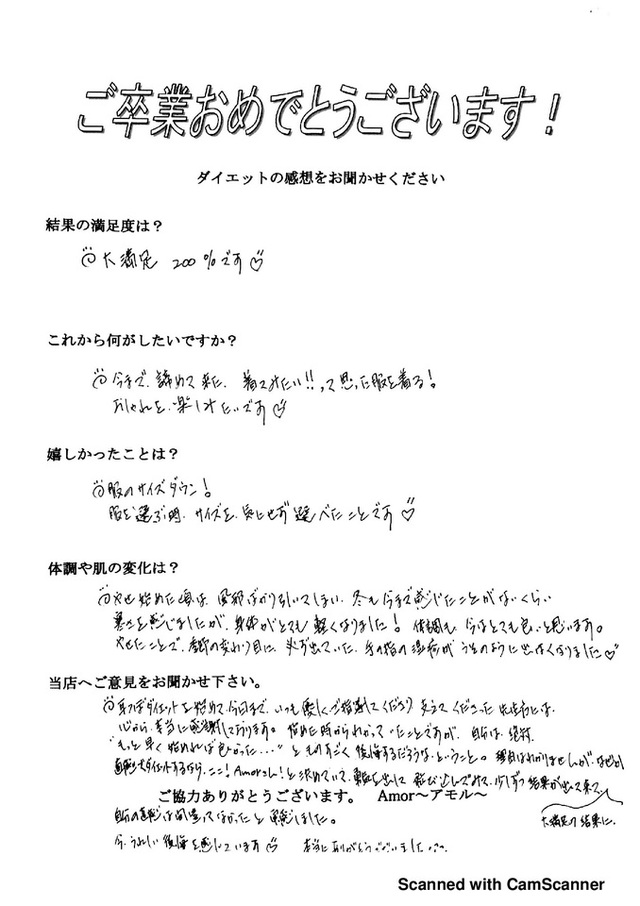 ご卒業おめでとうございます！
ダイエットの感想をお聞かせください
結果の満足度は？
大満足 200%です♡
これから何がしたいですか？
今まで、諦めて来た、着てみたい!!って思った服を着る！
おしゃれを、楽しみたいです♡
嬉しかったことは？
服のサイズダウン！
服を選ぶ時、サイズを、気にせず選べたことです♡
体調や肌の変化は？
やせ始めた頃は、風邪ばかり引いてしまい、冬も今まで感じたことがないくらい
寒さを感じましたが、身体がとても軽くなりました！ 体調も、今はとても良いと思います。
やせたことで、季節の変わり目に、必ず出ていた、手の指の湿疹が うそのように出なくなりました♡
当店へご意見をお聞かせ下さい。
ダイエットを始めて、今日まで、いつも優しくご指導してくださり 支えてくださった 先生方には、
心から、本当に感謝しております。 始めた時からわかっていたことですが、自分は、絶対
"もっと早く始めれば良かった..." と ものすごく後悔するだろうな、ということ。 理由はわかりませんが、なぜか
ダイエットするなら、ここ！Amorさん！と決めていて、勇気を出して 飛び込んで 少しずつ 結果が出て来て
ご協力ありがとうございます。 Amor～アモル～
大満足の結果に、
自分の直感は間違ってなかったと 実感しました。
今、うれしい後悔を感じています♡ 本当にありがとうございました
Scanned with CamScanner